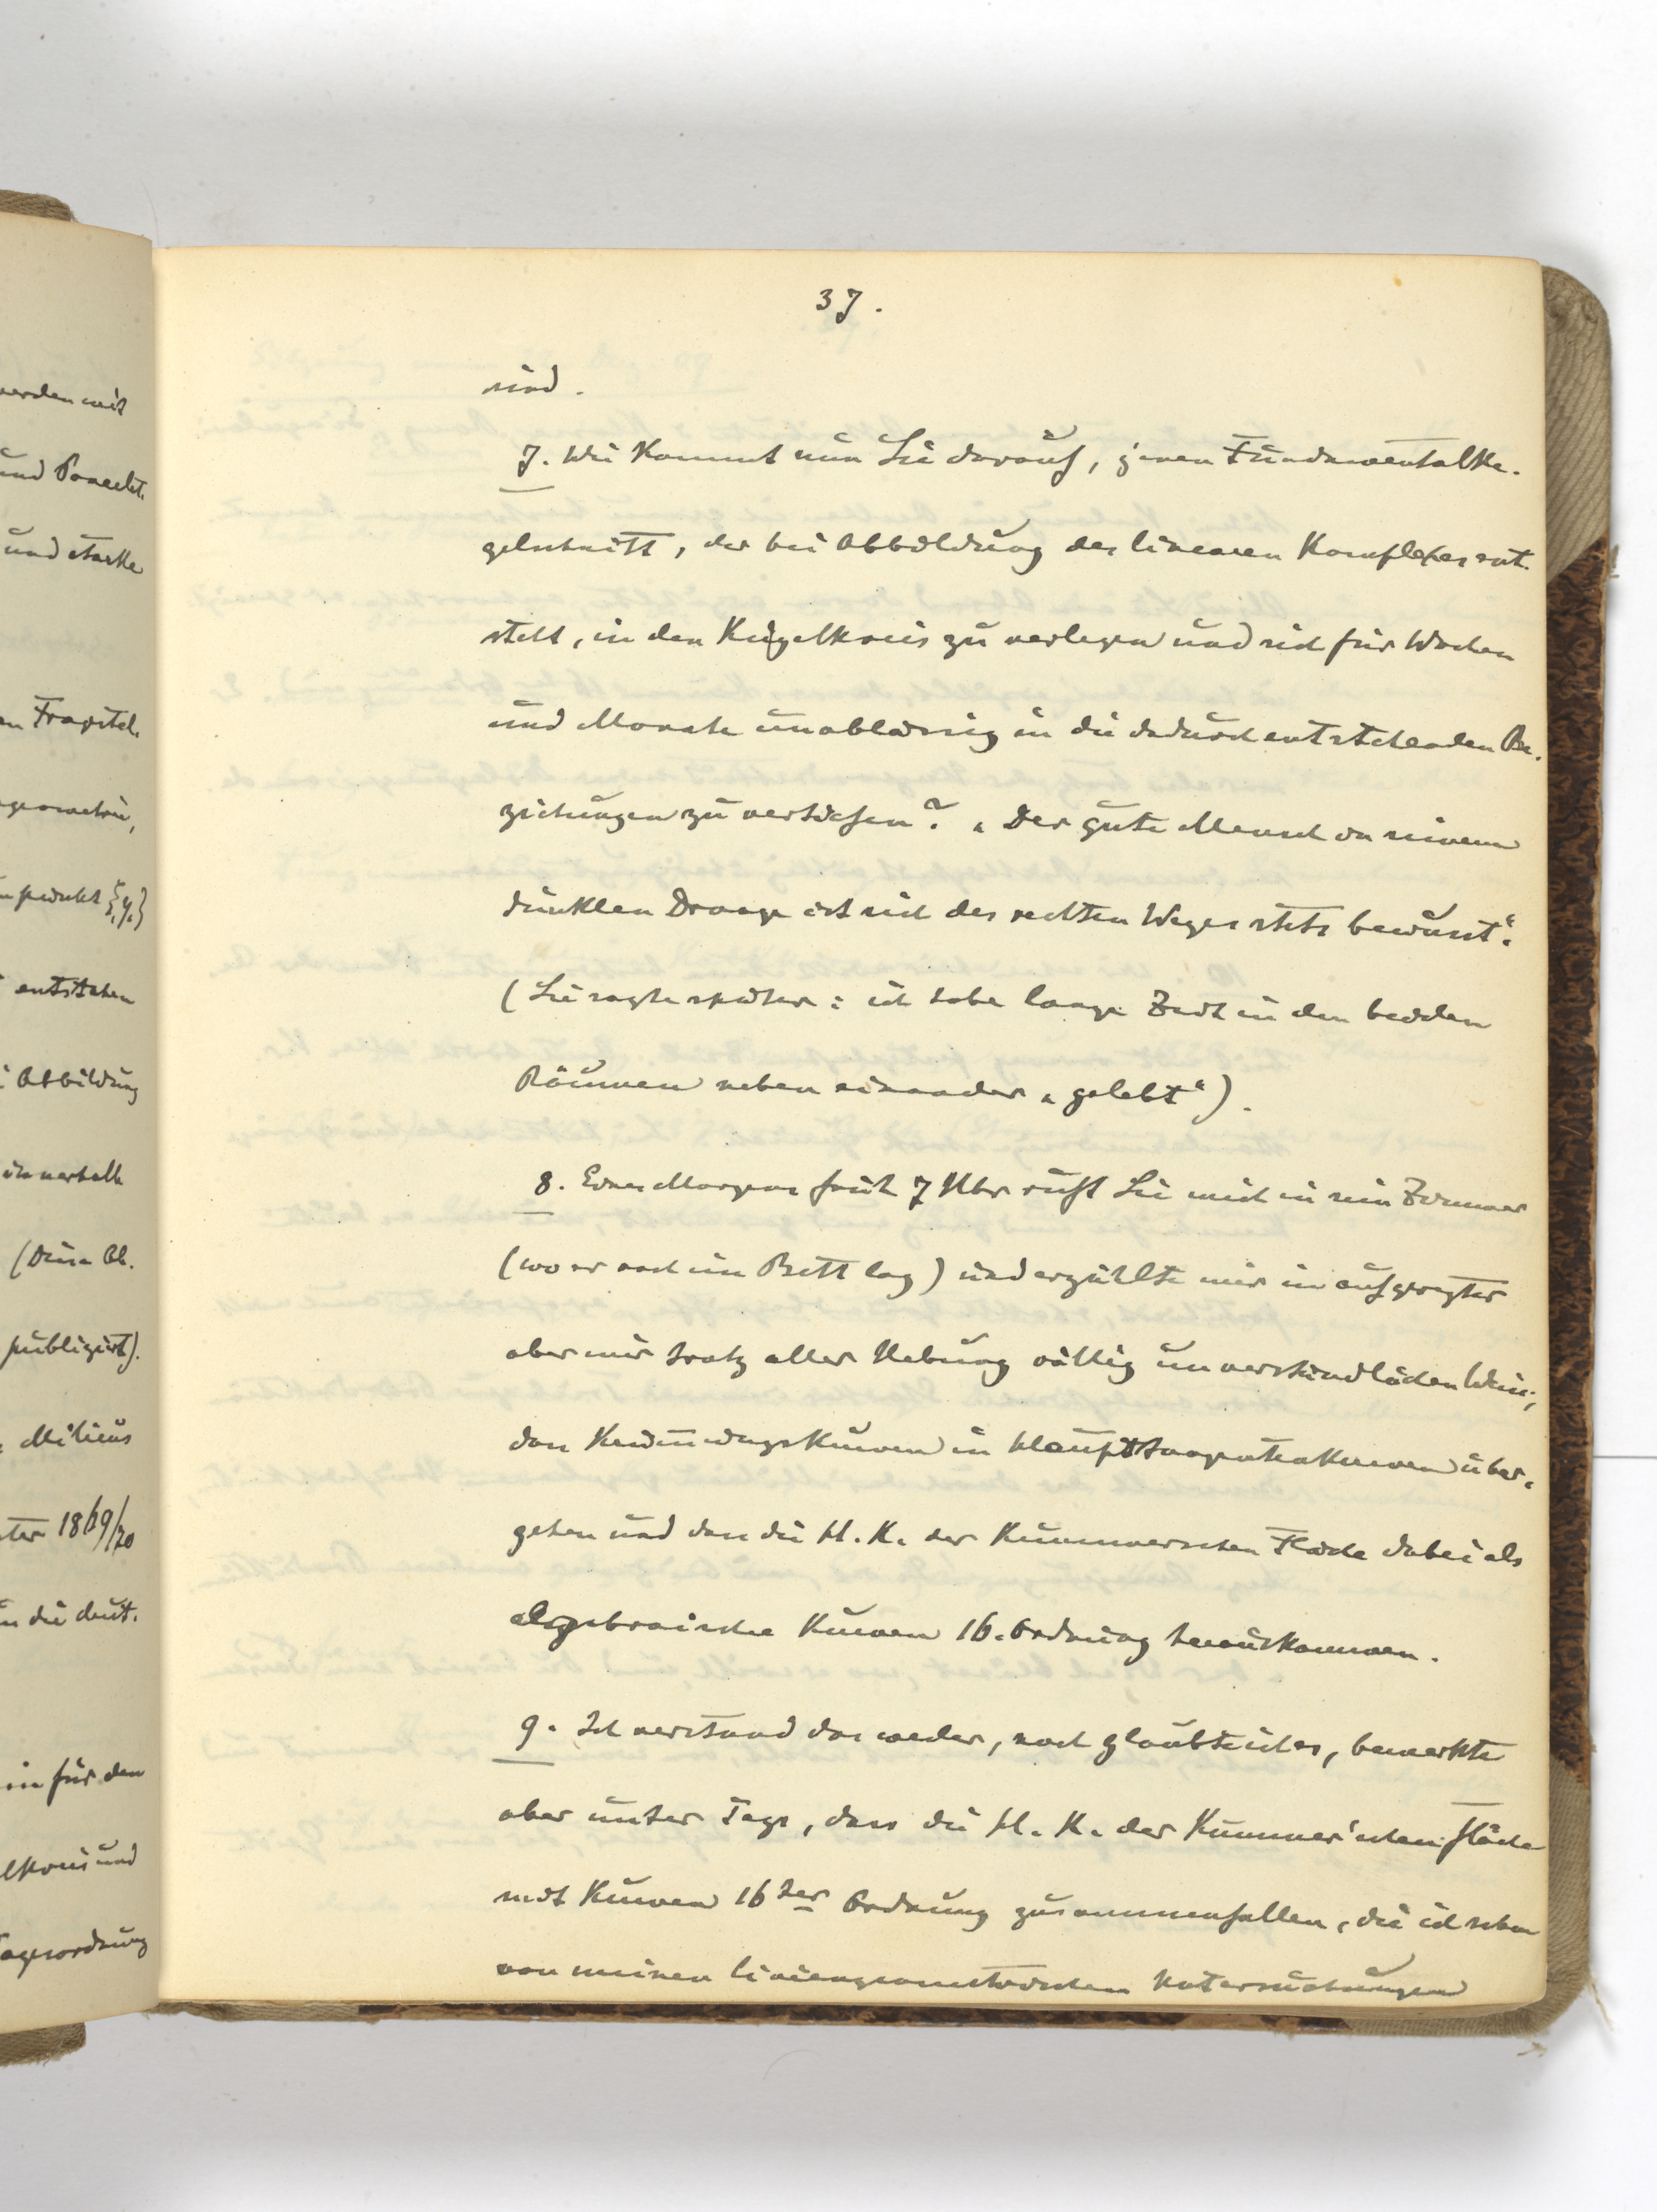 37.
sind.
7. Wie kommt nun Lie darauf, jenen Fundamentalke-
gelschnitt, der bei Abbildung des linearen Komplexes ent-
steht, in den Kugelkreis zu verlegen und sich für Wochen
und Monate unablässig in die dadurch entstehenden Be-
ziehungen zu vertiefen? „Der gute Mensch in seinem
dunklen Drange ist sich des rechten Weges stets bewusst“.
(Lie sagte später: ich habe lange Zeit in den beiden
Räumen neben einander „gelebt“).
8. Eines Morgens früh 7 Uhr ruft Lie mich in sein Zimmer
(wo er noch im Bett lag) und erzählte mir in aufgeregter
aber mir trotz aller Uebung völlig unverständlichen Weise,
dass Krümmungskurven in Haupttangentenkurven über-
gehen und dass die H. K. der Kummerschen Fläche dabei als
algebraische Kurven 16. Ordnung herauskommen.
9. Ich verstand das weder, noch glaubte ich es, bemerkte
aber unter Tags, dass die H. K. der Kummer'schen Fläche
mit Kurven 16ter Ordnung zusammenfallen, die ich schon
von meinen liniengeometrischen Untersuchungen
werden mit
und Poncelet.
und starke
Frapstel.
geometrie,
punkt {y.}
entstehen
Abbildung
innerhalb
(Diese Ab-
publizirt).
Milieus
18 19/20
in die deut-
in für den
lkreis und
agesordnung